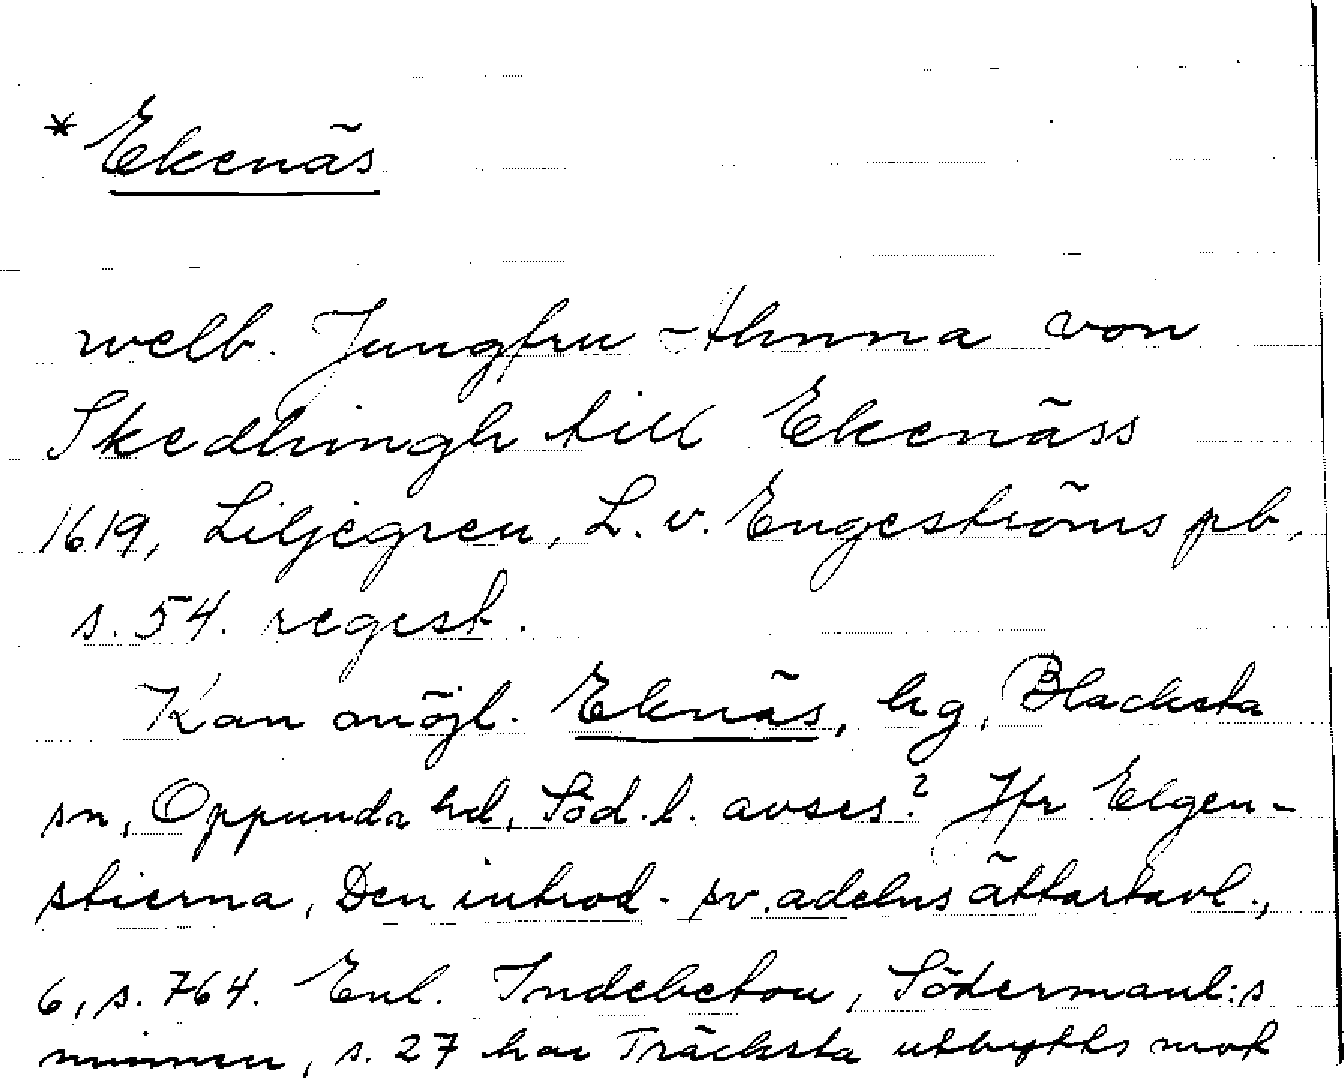 * Ekenäs
welb. Jungfru Anna von
Skedhingh till Ekenäss
1619, Liljegren, L. v. Engeströms pb,
s. 54. regest.
Kan möjl. Eknäs, hg, Blacksta
sn, Oppunda hd, Söd. l. avses? Jfr Elgen-
stierna, Den introd. sv. adelns ättartavl.,
6, s. 764. Enl. Indebetou, Södermanl:s
minnen, s. 27 har Träcksta utbytts mot